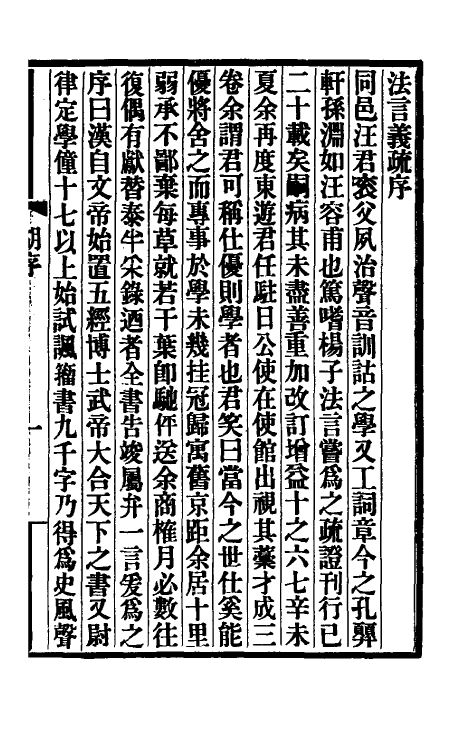 法言義疏序
同邑汪君袞父夙治聲音訓詁之學又工詞章今之孔顨
軒孫淵如汪容甫也篤嗜楊子法言嘗爲之疏證刊行已
二十載矣嗣病其未盡善重加改訂增益十之六七辛未
夏余再度東遊君任駐日公使在使館出視其藁才成三
卷余謂君可稱仕優則學者也君笑曰當今之世仕奚能
優將舍之而專事於學未幾挂冠歸寓舊京距余居十里
弱承不鄙棄每草就若干葉卽馳伻送余商榷月必數往
復偶有獻替泰半采錄迺者全書告竣屬弁一言爰爲之
序曰漢自文帝始置五經博士武帝大合天下之書又尉
律定學僮十七以上始試諷籀書九千字乃得爲史風聲
胡序
一